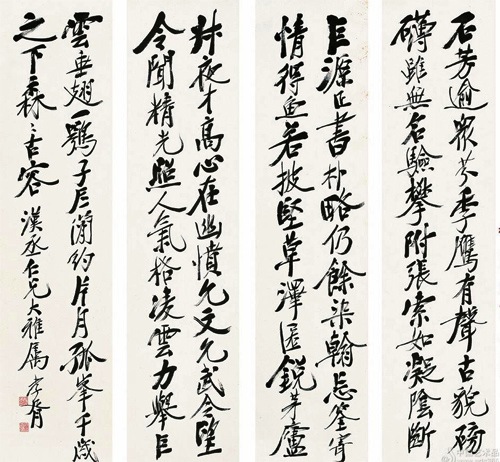 石芳逾眾芬季鷹有聲古貌磅
礴雖無名驗攀附張索如凝陰斷
巨源正書朴略仍餘染翰忘筌寄
情得魚若披堅草澤匿銳茅廬
叔夜才高心在幽憤允文允武令望
令聞精光照人氣格凌雲力舉巨
雲垂翅一鶚子尼蘭約片月孤峯千歲
之下森〻古容 漢丞仁兄大雅屬 孝胥